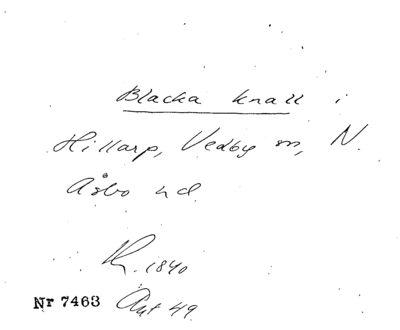 Blacka knall i
Hillarp, Vedby sn, N.
Åsbo hd.
1840
Nr 7463 Ant 49